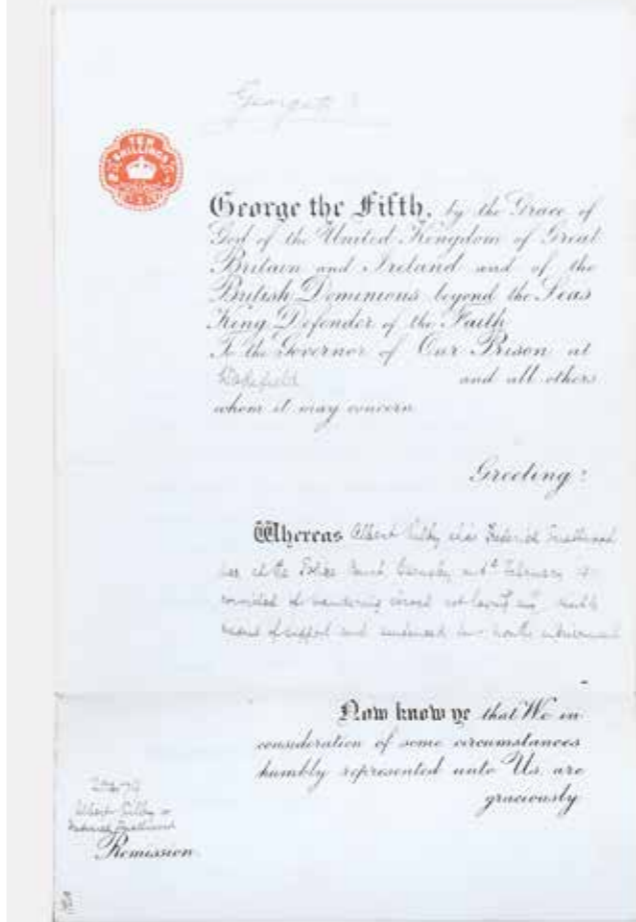 TEN
SHILLINGS
George the Fifth, by the Grace of
God of the United Kingdom of Great
Britain and Ireland and of the
British Dominions beyond the Seas
King Defender of the Faith
To the Governor of Our Prison at
Wakefield and all others
whom it may concern
Greeting:
Whereas Albert alias Frederick
at the Police Court February
convicted of wandering abroad not having any visible
means of support and sentenced imprisonment
Now know ye that We in
consideration of some circumstances
humbly represented unto Us, are
graciously
Albert
Frederick
Remission